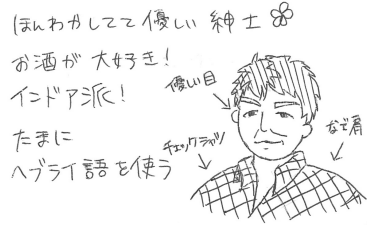 ほんわかしてて優しい紳士
お酒が大好き!
インドア派!
たまに
ヘブライ語を使う
優しい目
チェックシャツ
なで肩